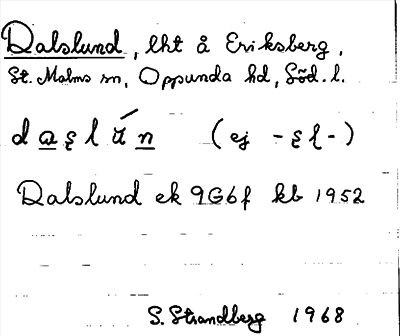 Dalslund, lht å Eriksberg,
St. Malms sn, Oppunda hd, Söd. l.
da̲ʂlú̵n̲ (ej -ʂɭ-)
Dalslund ek 9G6f kb 1952
S. Strandberg 1968